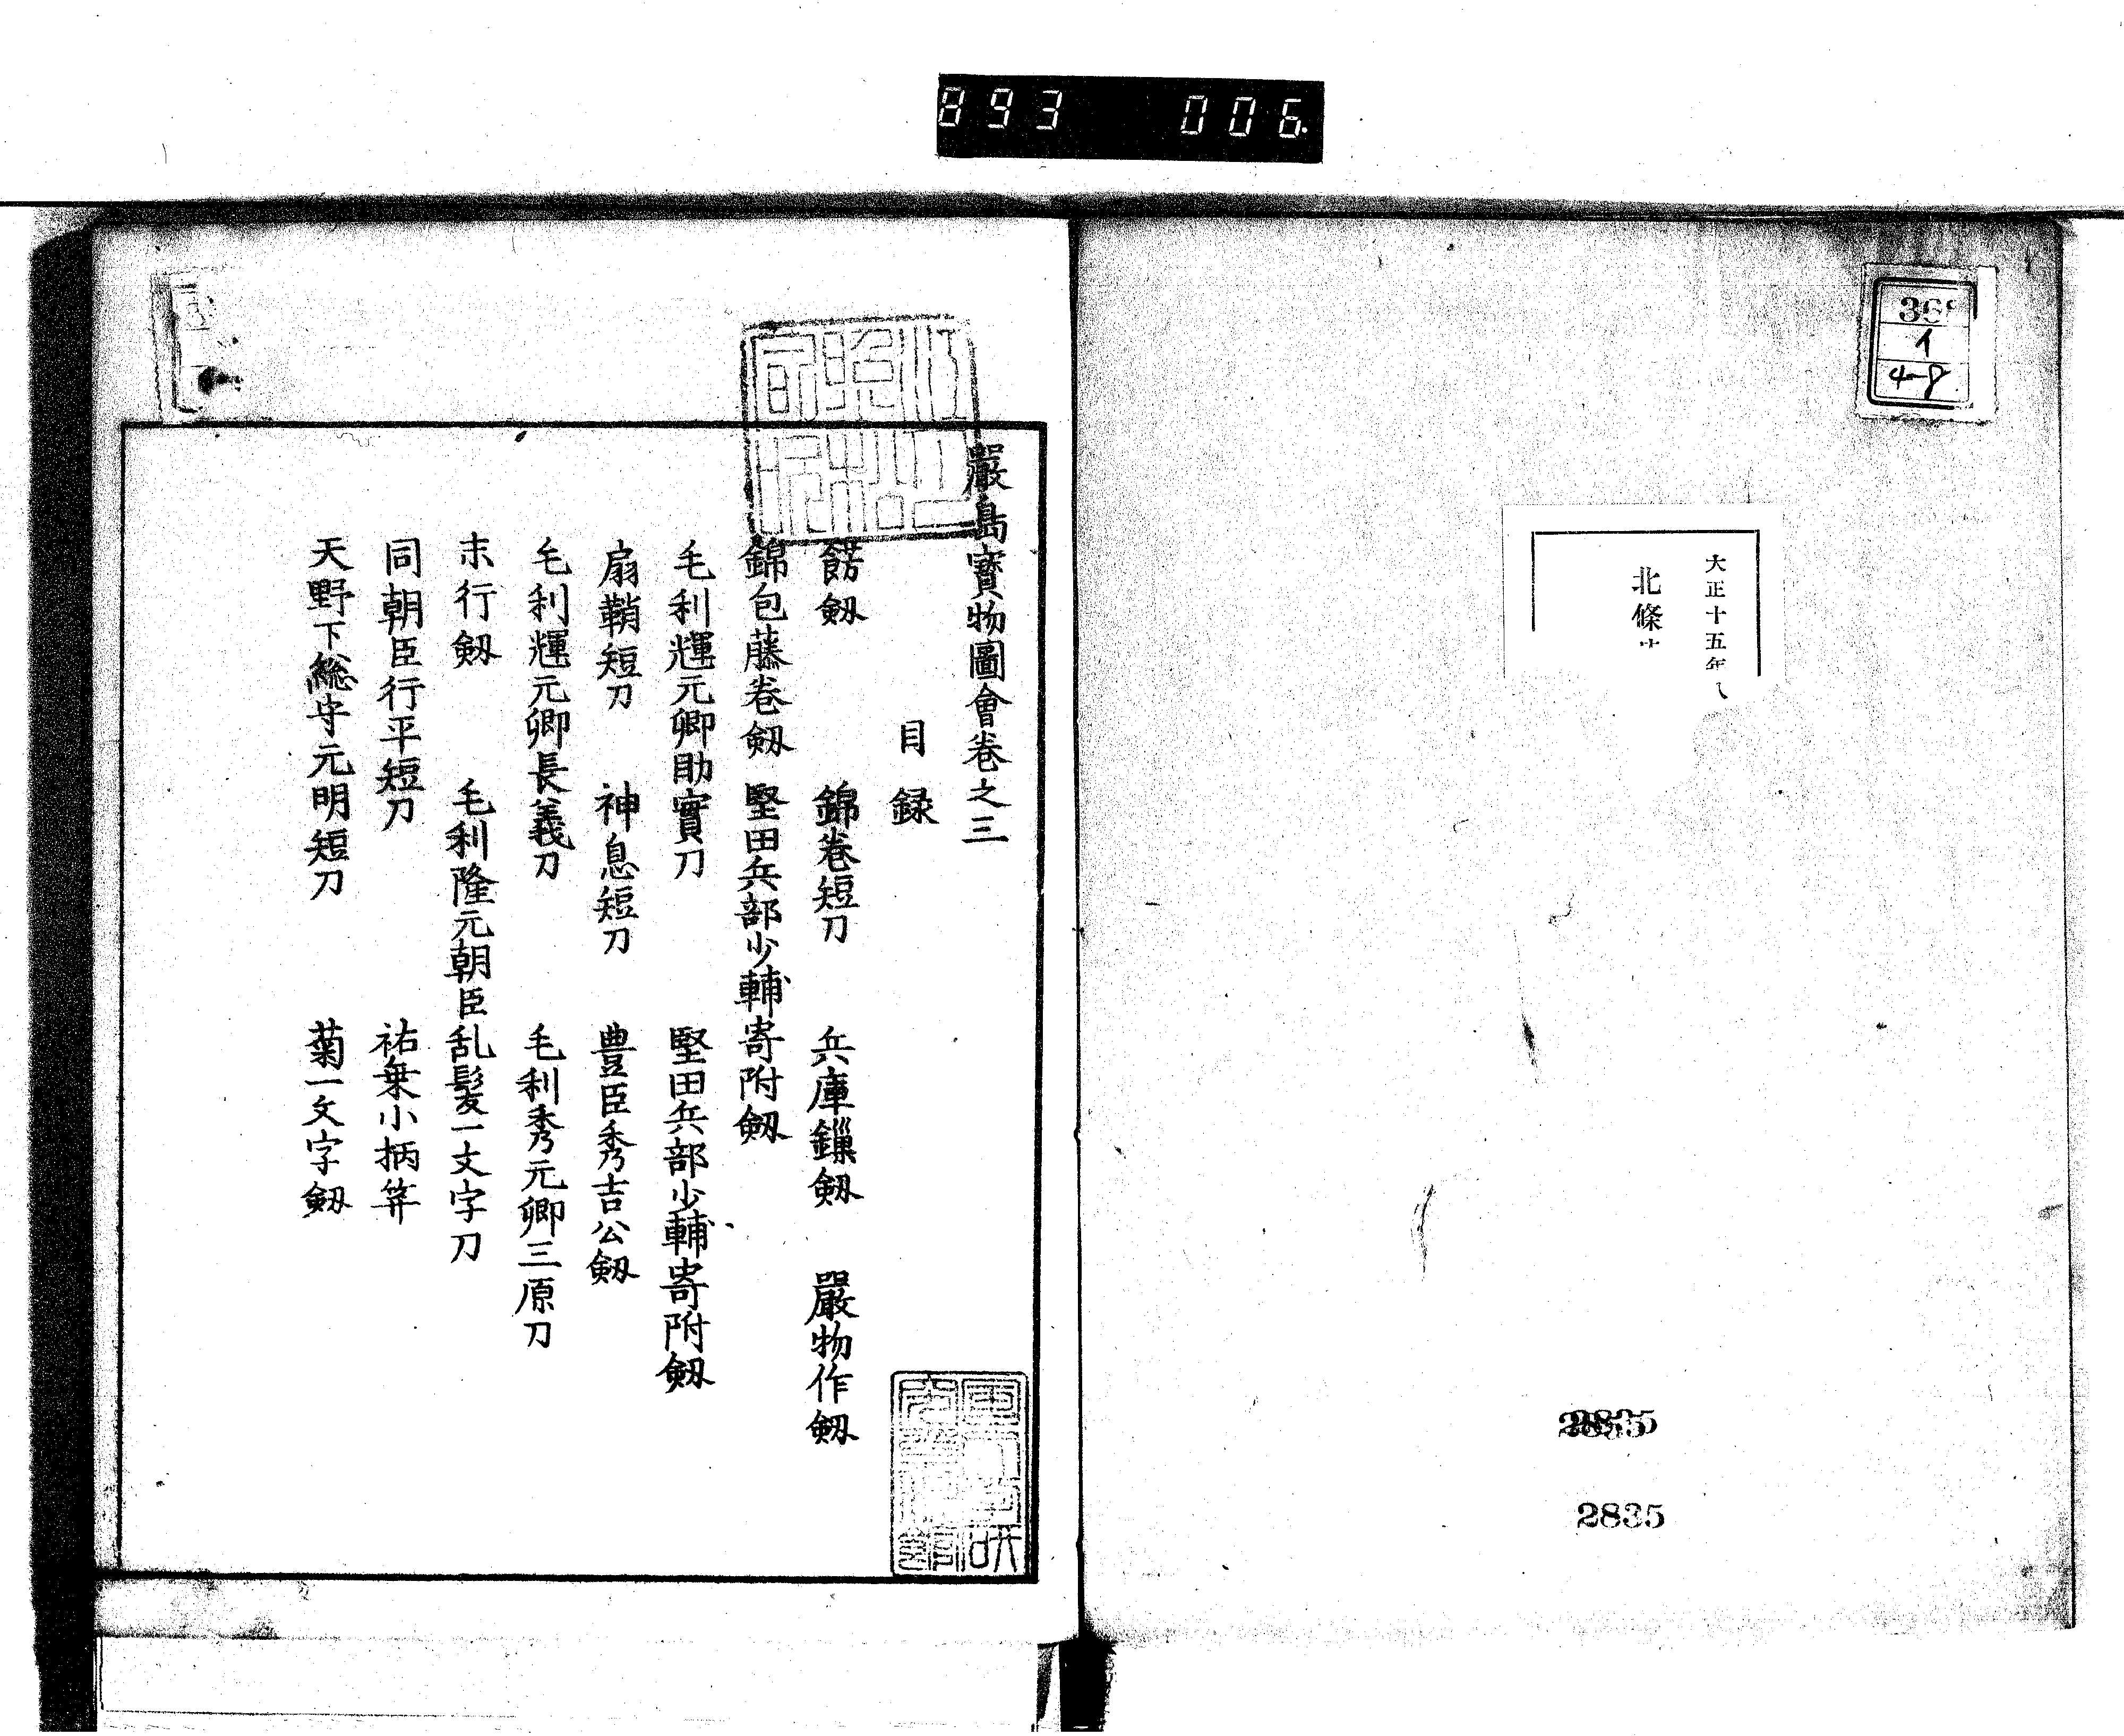 893 006.
4-8
大正十五年八
北條
2835
2835
嚴島寶物圖會卷之三
目録
餝剱 錦卷短刀 兵庫鏁剱 嚴物作剱
錦包藤卷剱 堅田兵部少輔寄附剱
毛利輝元卿助實刀 堅田兵部少輔寄附剱
扇鞘短刀 神息短刀 豊臣秀吉公剱
毛利輝元卿長義刀 毛利秀元卿三原刀
末行剱 毛利隆元朝臣乱髪一文字刀
同朝臣行平短刀 祐乗小柄笄
天野下総守元明短刀 菊一文字剱